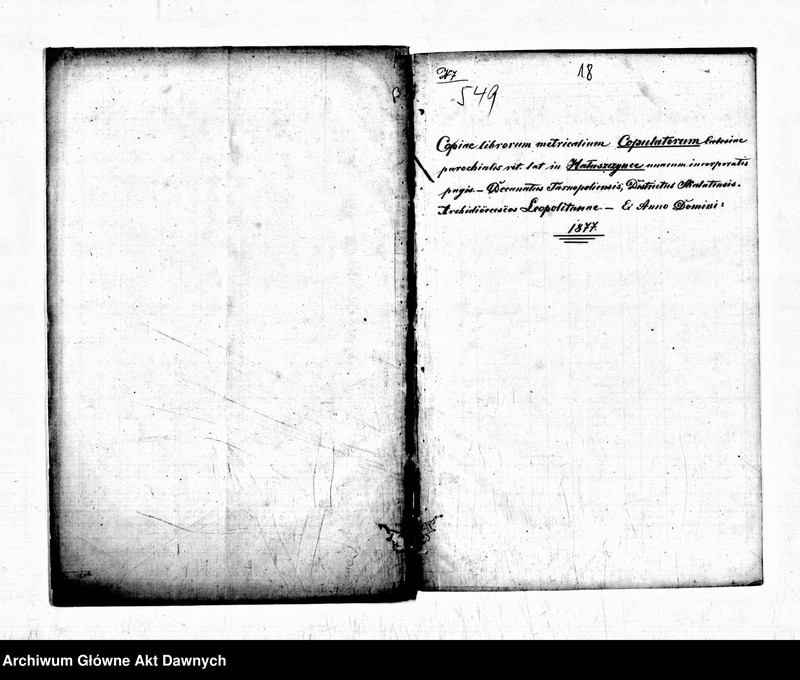 N7
18
549
Copiae librorum metricalium Copulatorum Ecclesiae
parochialis rit. lat in Hałuszczynce unacum incorporatis
pagis. – Decanatus Tarnopoliensis, Districtus Skalatensis.
Archidiöecesëos Leopolitanae – Ex Anno Domini:
1877.
Archiwum Główne Akt Dawnych